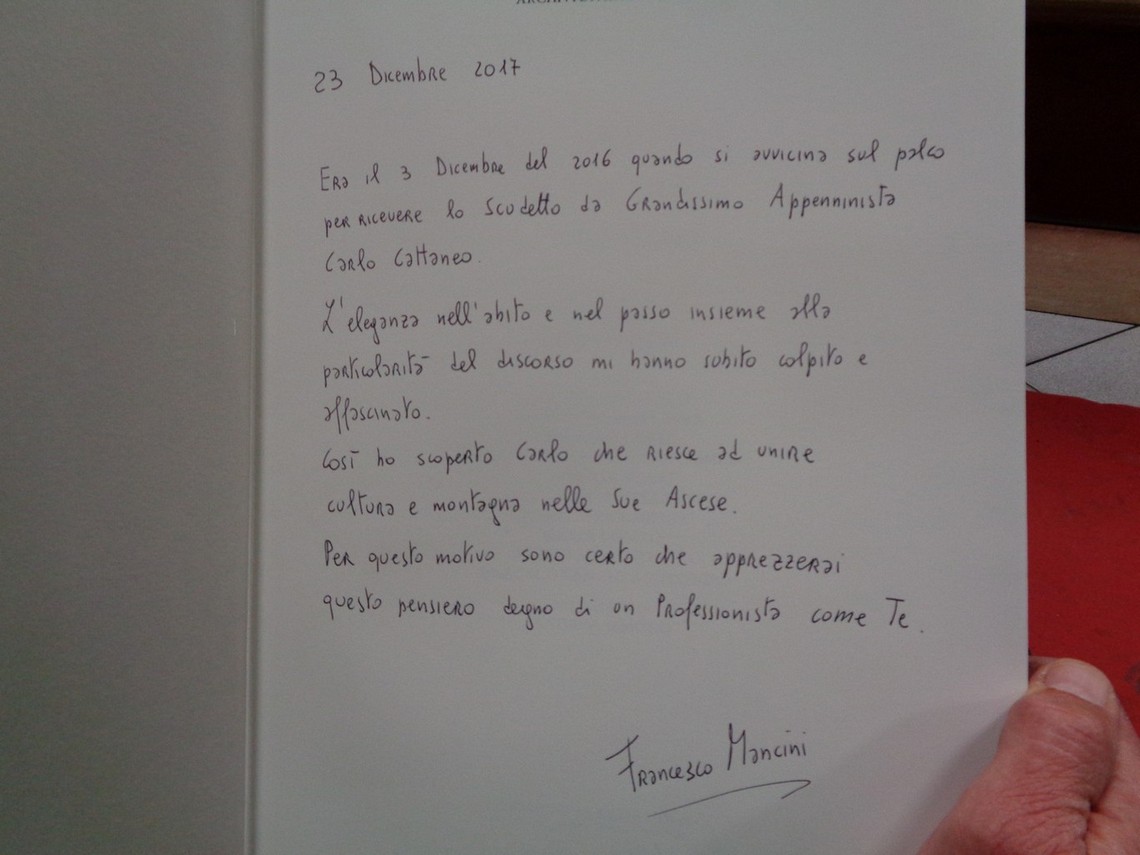 23 Dicembre 2017
Era il 3 Dicembre del 2016 quando si avvicina sul palco
per ricevere lo Scudetto da Grandissimo Appenninista
Carlo Cattaneo.
L'eleganza nell'abito e nel passo insieme alla
particolarità del discorso mi hanno subito colpito e
affascinato.
Così ho scoperto Carlo che riesce ad unire
cultura e montagna nelle Sue Ascese.
Per questo motivo sono certo che apprezzerai
questo pensiero degno di un Professionista come Te.
Francesco Mancini